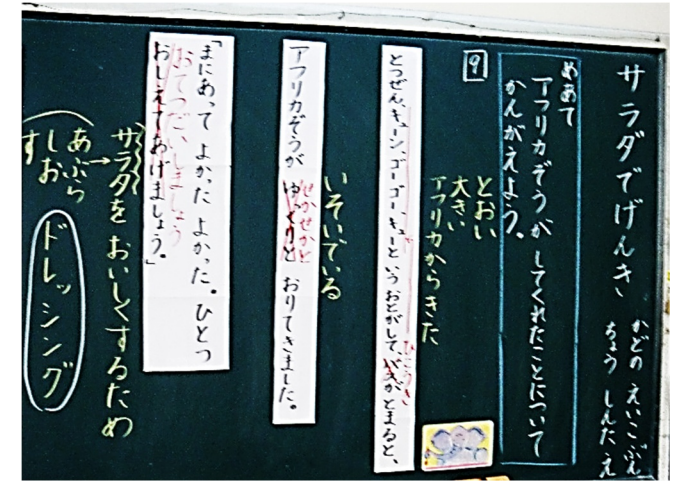 サラダでげんき
かどの えいこ ぶん
ちょう しんた え
めあて
アフリカぞうが してくれたことについて
かんがえよう。
9
とおい
大きい
アフリカからきた
とつぜん、キューン、ゴーゴー、キューという おとがして、
ひこうき
がとまると、
いそいでいる
アフリカぞうが ゆっくりと おりてきました。
せかせかと
「まにあって よかった よかった。ひとつ
おてつだいしましょう
おしえてあげましょう。」
サラダを おいしくするため
あぶら
しお
す
ドレッシング